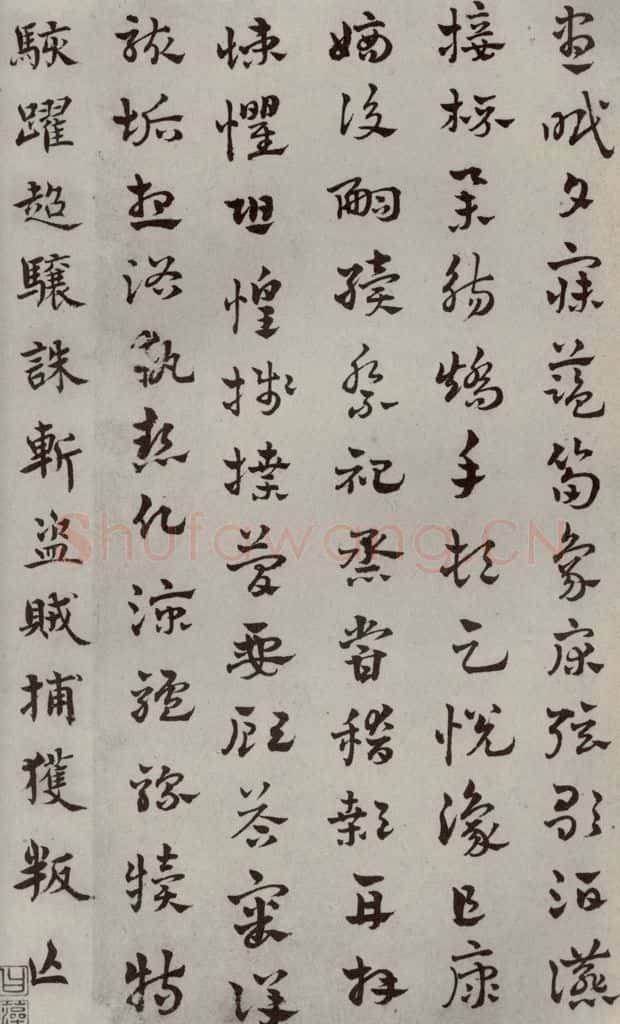 晝眠夕寐藍筍象床弦歌酒讌
接杯舉觴矯手頓足悅豫且康
嫡後嗣續祭祀蒸嘗稽顙再拜
悚懼恐惶牋牒簡要顧答審詳
骸垢想浴執熱願涼驢騾犢特
駭躍超驤誅斬盜賊捕獲叛亡
Shufawang.CN